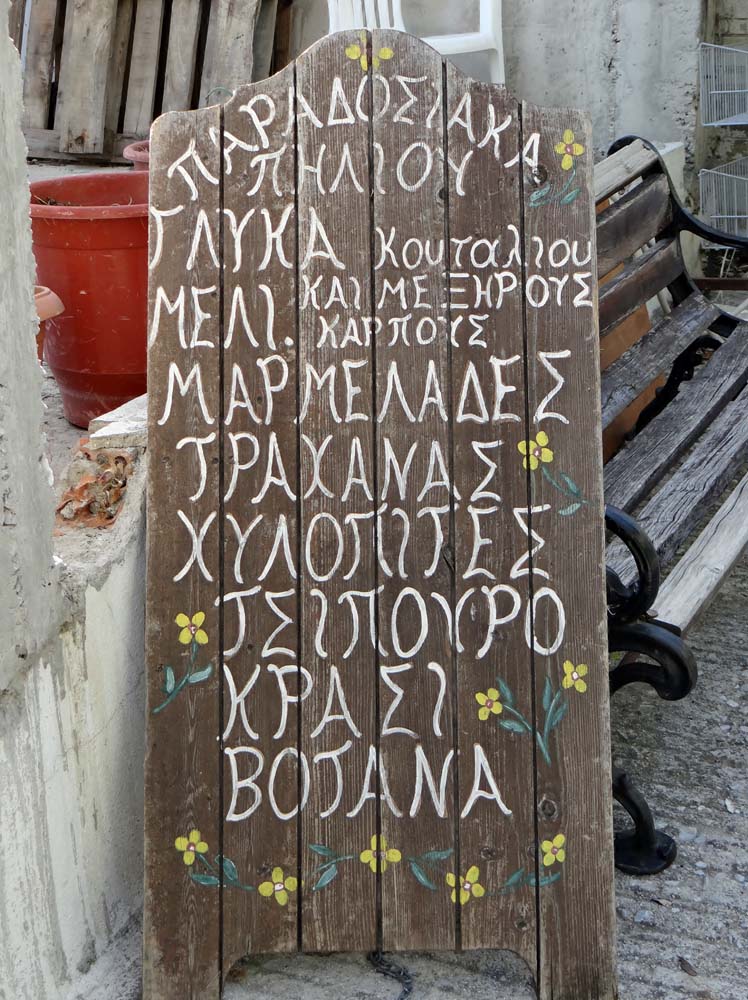 ΠΑΡΑΔΟΣΙΑΚΑ
ΠΗΛΙΟΥ
ΓΛΥΚΑ Κουταλιου
ΜΕΛΙ. ΚΑΙ ΜΕ ΞΗΡΟΥΣ
ΚΑΡΠΟΥΣ
ΜΑΡΜΕΛΑΔΕΣ
ΤΡΑΧΑΝΑΣ
ΧΥΛΟΠΙΤΕΣ
ΤΣΙΠΟΥΡΟ
ΚΡΑΣΙ
ΒΟΤΑΝΑ